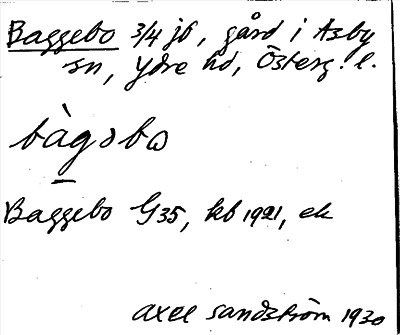 Baggebo 3/4 jb, gård i Asby
sn, Ydre hd, Österg. l.
bàgəbω
Baggebo G35, kb 1921, ek
Axel Sandström 1930